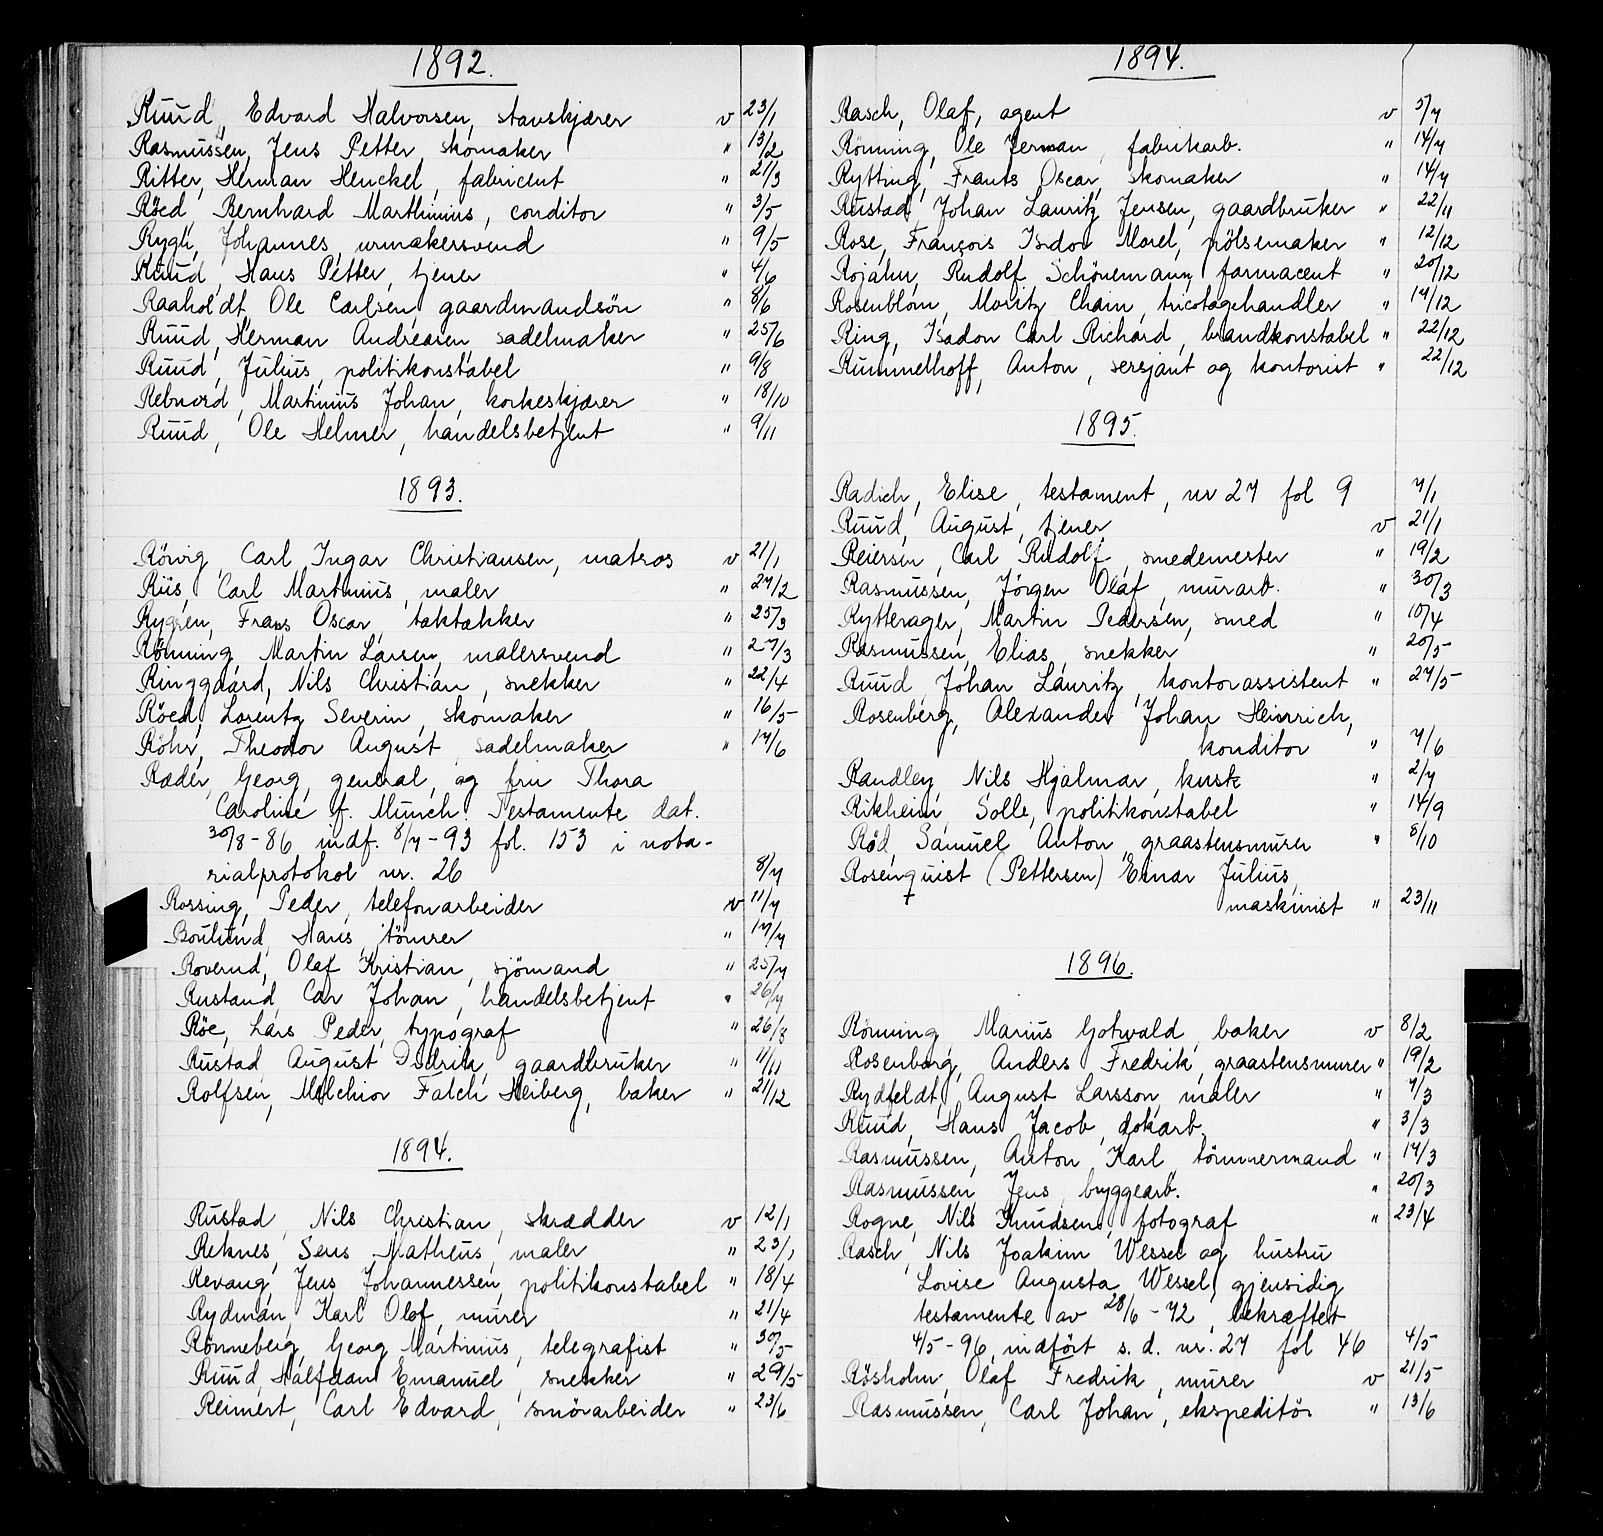 1892.
Ruud, Edvard Halvorsen, stavskjærer v 23/1
Rasmussen, Jens Petter, skomaker " 13/2
Ritter, Herman Henckel, fabricent " 21/3
Röed, Bernhard Marthinius, conditor " 3/5
Rygh, Johannes, urmakersvend " 9/5
Ruud, Hans Petter, tjener " 4/6
Raaholdt, Ole Carlsen, gaardmandsön " 8/6
Ruud, Herman Andreasen, sadelmaker " 25/6
Ruud, Julius, politikonstabel " 9/8
Rebnord, Martinius Johan, korkeskjærer " 18/10
Ruud, Ole Helmer, handelsbetjent " 9/11
1893.
Rörvig, Carl Ingar Christiansen, matros v 21/1
Riis, Carl Martinius, maler " 27/2
Rygren, Frans Oscar, taktækker " 25/3
Rönning, Martin Larsen, malersvend " 27/3
Ringgaard, Nils Christian, snekker " 22/4
Röed, Lorentz Severin, skomaker " 16/5
Röhr, Theodor August, sadelmaker " 17/6
Ræder, Georg, general, og fru Thora
Caroline f. Munch. Testamente dat.
30/8-86 indf. 8/7-93 fol. 153 i nota-
rialprotokol nr. 26 8/7
Rossing, Peder, telefonarbeider v 11/7
Roulund, Hans, tömrer " 17/7
Roverud, Olaf Kristian, sjömand " 25/7
Rustand, Carl Johan, handelsbetjent " 26/7
Röe, Lars Peder, typograf " 26/8
Rustad, August Didrik, gaardbruker " 11/11
Rolfsen, Melchior Falch Heiberg, baker " 21/12
1894.
Rustad, Nils Christian, skrædder v 12/1
Reknes, Sens Matheus, maler " 23/1
Revang, Jens Johannessen, politikonstabel " 18/4
Rydman, Karl Olof, murer " 21/4
Rönneberg, Georg Martinius, telegrafist " 30/5
Ruud, Halfdan Emanuel, snekker " 29/5
Reimert, Carl Edvard, smörarbeider " 23/6
1894.
Rasch, Olaf, agent v 5/7
Rönning, Ole Herman, fabrikarb. " 14/7
Rytting, Frants Oscar, skomaker " 14/7
Rustad, Johan Lauritz Jensen, gaardbruker " 22/11
Rose, François Isidor Morel, pölsemaker " 12/12
Rojahn, Rudolf Schönemann, farmaceut " 20/12
Rosenblom, Moritz Chaim, tricotagehandler " 14/12
Ring, Isadon Carl Richard, brandkonstabel " 22/12
Rummelhoff, Anton, sersjant og kontorist " 22/12
1895.
Radich, Elise, testament, nr 27 fol 9 7/1
Ruud, August, tjener v 21/1
Reiersen, Carl Rudolf, smedemester " 19/2
Rasmussen, Jörgen Olaf, murarb. " 30/3
Rytterager, Martin Pedersen, smed " 10/4
Rasmussen, Elias, snekker " 20/5
Ruud, Johan Lauritz, kontorassistent " 27/5
Rosenberg, Alexander Johan Heinrich,
konditor " 7/6
Randley, Nils Hjalmar, kusk " 2/7
Rikheim, Solle, politikonstabel " 14/9
Röd, Samuel Anton, graastensmurer " 8/10
Rosenquist (Pettersen) Einar Julius,
maskinist " 23/11
1896.
Rönning, Marius Gotwald, baker v 8/2
Rosenborg, Anders Fredrik, graastensmurer " 19/2
Rydfeldt, August Larsson, maler " 7/3
Ruud, Hans Jacob, dokarb. " 3/3
Rasmussen, Anton Karl, tömmermand " 14/3
Rasmussen, Jens, byggearb. " 20/3
Rogne, Nils Knudsen, fotograf " 23/4
Rasch, Nils Joakim Wessel og hustru
Lovise Augusta Wessel, gjensidig
testamente av 28/6-72, bekræftet
4/5-96, indfört s. d. nr. 27 fol 46 4/5
Rösholm, Olaf Fredrik, murer v 21/5
Rasmussen, Carl Johan, ekspeditör " 13/6